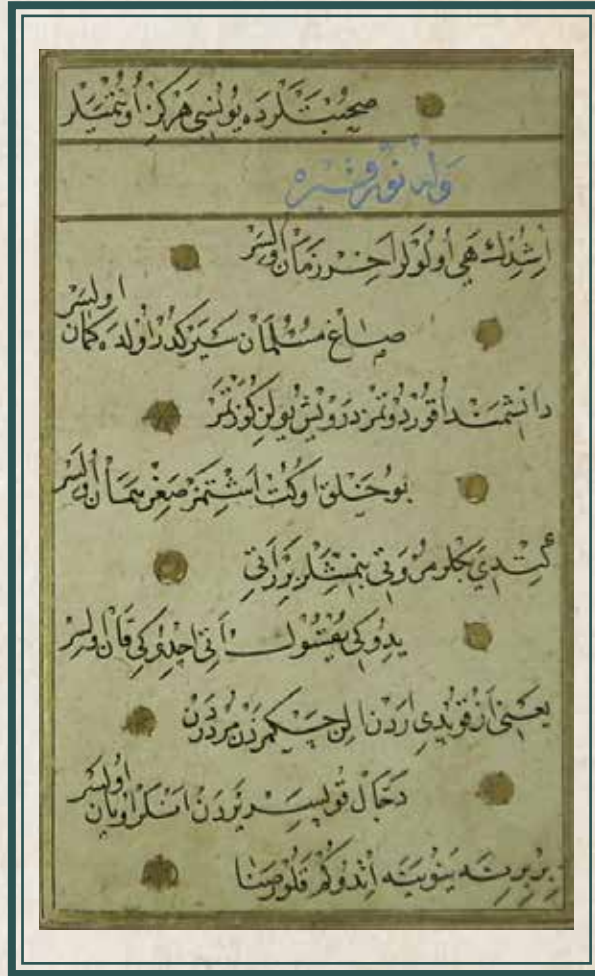 صحبتلرده يونسی هركز اونتميلر
وله نور قبره
اشدك هی اولولر اخر زمان اولسر
صاغ مسلمان سيركدر اولده كمان اوليسر
دانشمند اوقور دوتمز درويش يولن كوزتمز
بو خلق اوكت اشتمز صغر همان اولسر
كتدی بكلر مروتی بنمشلر بر اتی
يدوكی يقسول اتی اچدوكی قان اولسر
يعنی ار قويدی اردن الن چكمز مردردن
دجال قوپيسر يردن انكر اويان اوليسر
بر برينه اتدوكم قلور صنا